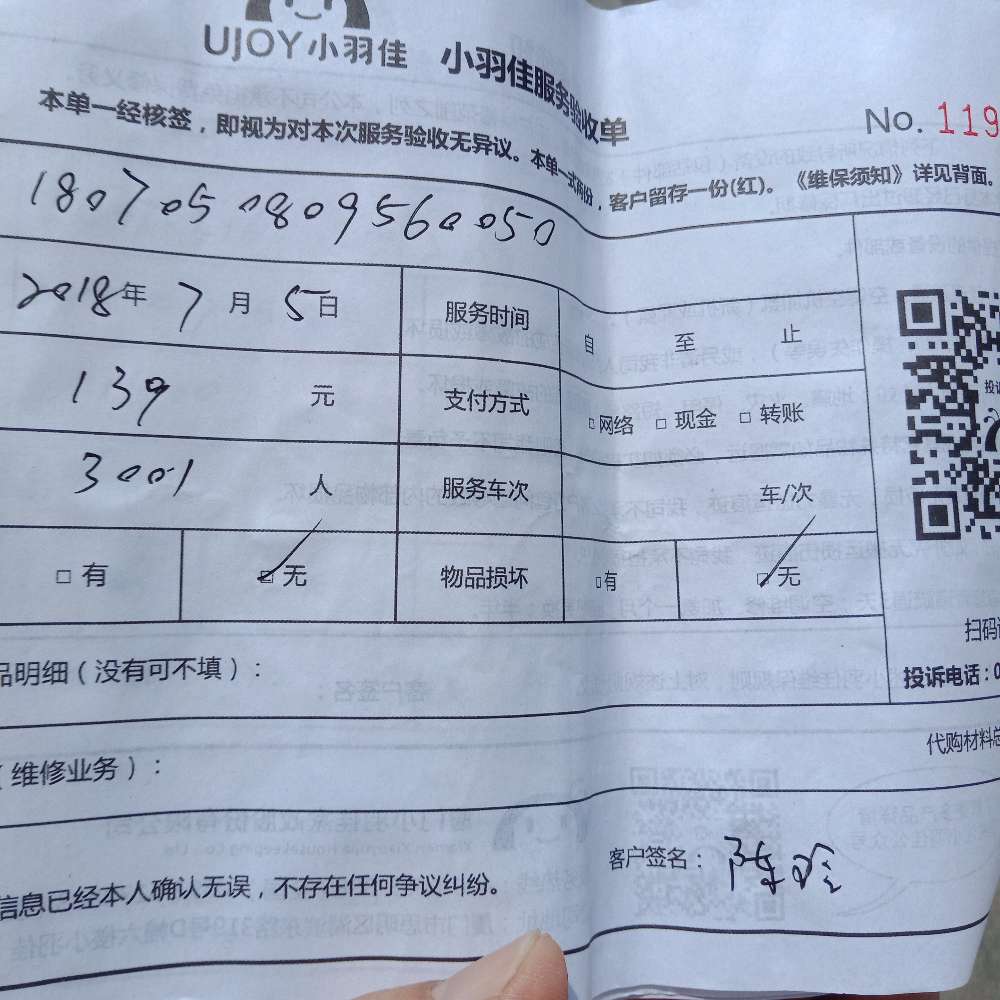 UJOY小羽佳 小羽佳服务验收单
No. 119
本单一经核签，即视为对本次服务验收无异议。本单一式两份，客户留存一份(红)。《维保须知》详见背面。
1807050809560050
2018年 7月 5日 服务时间 自 至 止
139 元 支付方式 □网络 □现金 □转账
投诉
3001 人 服务车次 车/次
□有 □无 物品损坏 □有 □无
扫码
品明细（没有可不填）：
投诉电话：0
代购材料总
（维修业务）：
客户签名：
信息已经本人确认无误，不存在任何争议纠纷。